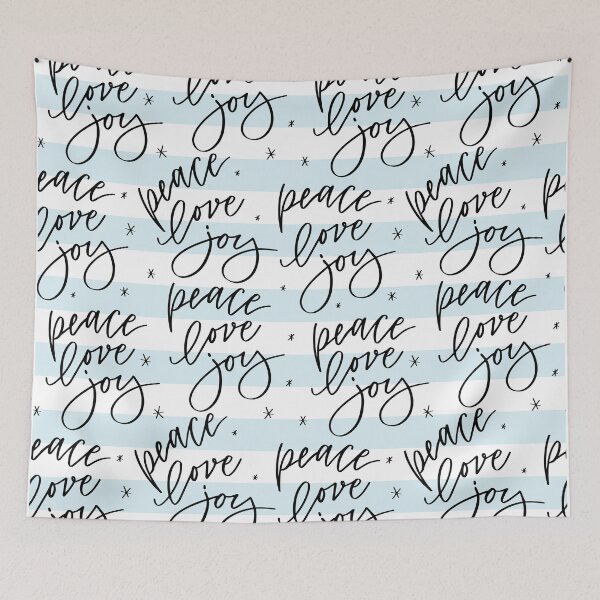 peace
love
joy
love
joy
peace
love
joy
love
joy
peace
love
joy
peace
love
joy
peace
love
joy
peace
love
joy
peace
love
joy
peace
love
joy
peace
love
joy
peace
love
joy
peace
love
joy
peace
love
joy
peace
love
joy
peace
love
joy